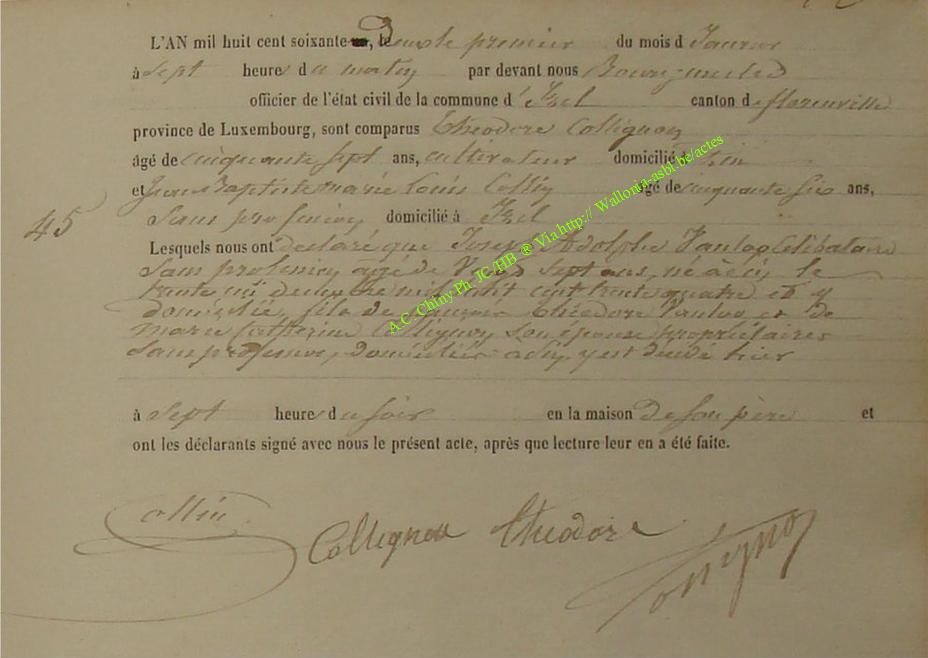 L'AN mil huit cent soixante-deux le premier du mois d Janvier
à Sept heure du matin par devant nous Bourgmestre
officier de l'état civil de la commune d'Izel canton de florenville
province de Luxembourg, sont comparus Théodore Collignon
âgé de cinquante sept ans, cultivateur domicilié à
et Jean Baptiste marie Louis Collin âgé de cinquante six ans,
Sans profession domicilié à Izel
45
Lesquels nous ont déclaré que Joseph Adolphe Célibataire
Sans profession agé de Vingt Sept ans, né à le
trente mil huit cent trente quatre et y
domicilié, fils de Théodore et de
marie Catherine Collignon Son épouse propriétaires
Sans profession, domiciliés y est décédé hier
à Sept heure du Soir en la maison de Son père et
ont les déclarants signé avec nous le présent acte, après que lecture leur en a été faite.
Collin
Collignon Théodore
A.C. Chiny Ph. JC/HB @ Via http:// Wallonia-asbl.be/actes